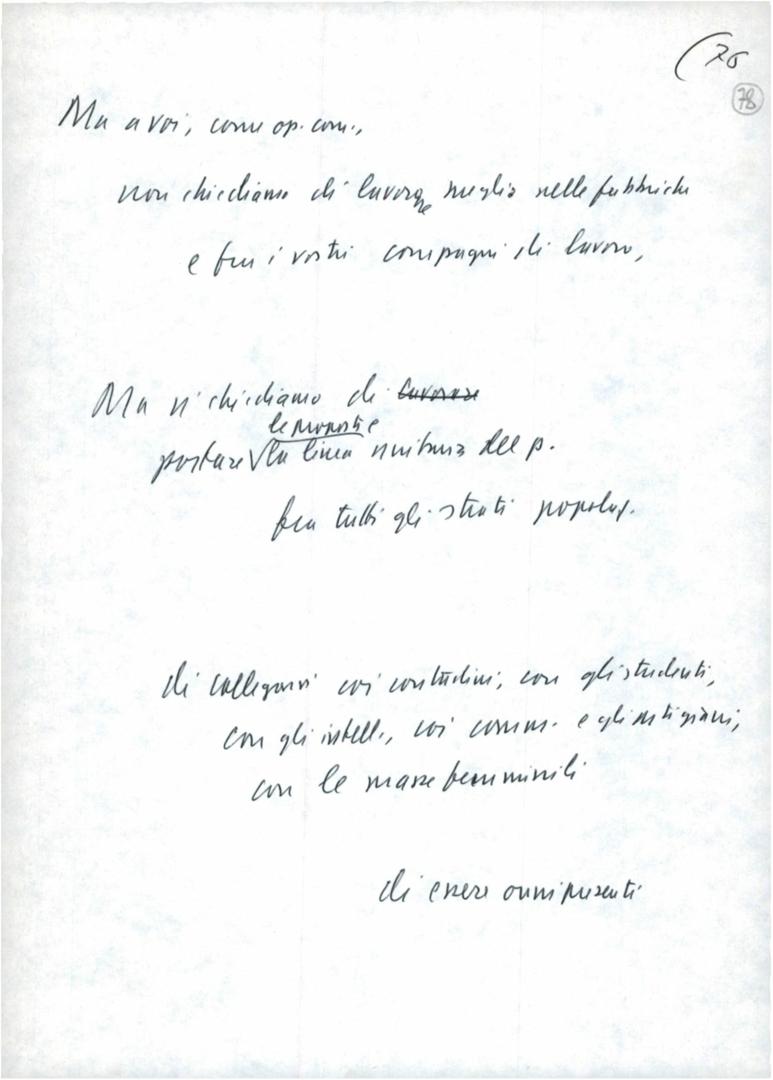 (76
78
Ma a voi, come op. com.,
non chiediamo di lavorare meglio nelle fabbriche
e fra i vostri compagni di lavoro,
Ma vi chiediamo di lavorare
le proposte
portare la linea unitaria del p.
fra tutti gli strati popolar.
di collegarvi coi contadini, con gli studenti,
con gli intell., coi comm. e gli artigiani,
con le masse femminili
di essere onnipresenti